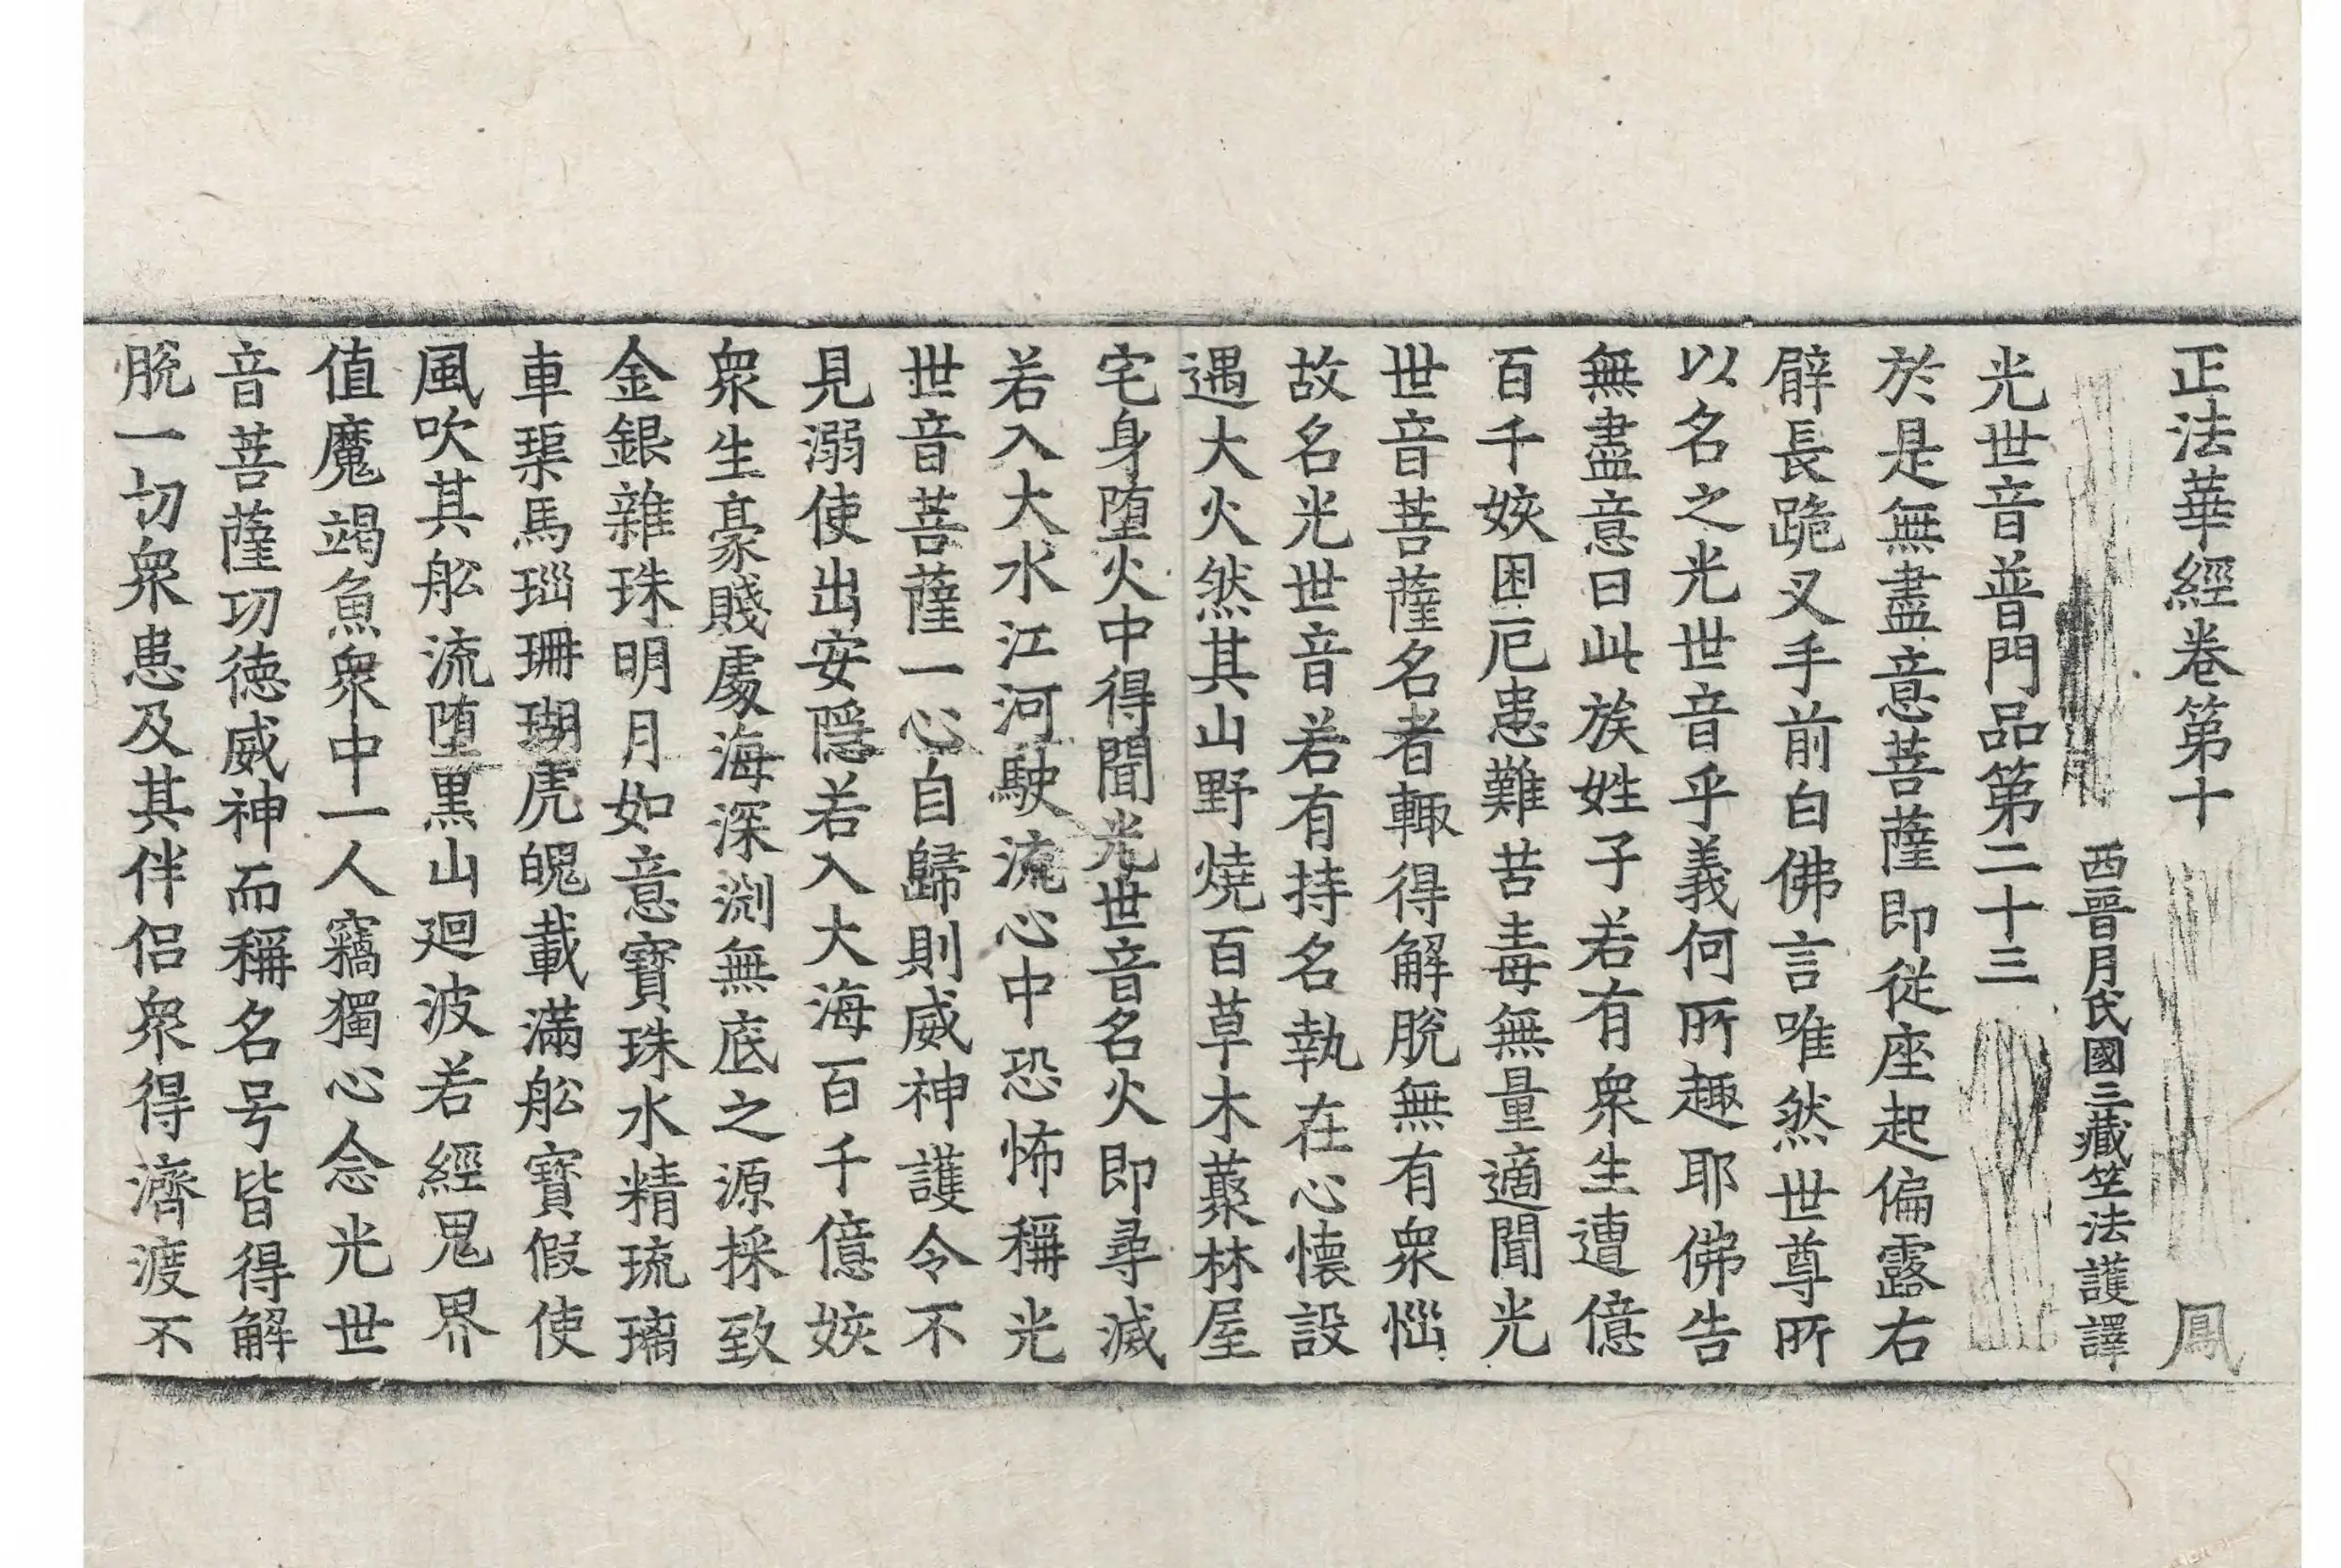 正法華經卷第十 鳳
西晉月氏國三藏竺法護譯
光世音普門品第二十三
於是無盡意菩薩即從座起偏露右
臂長跪叉手前白佛言唯然世尊所
以名之光世音乎義何所趣耶佛告
無盡意曰此族姓子若有衆生遭億
百千姟困厄患難苦毒無量適聞光
世音菩薩名者輙得解脫無有衆惱
故名光世音若有持名執在心懷設
遇大火然其山野燒百草木藂林屋
宅身堕火中得聞光世音名火即尋滅
若入大水江河駛流心中恐怖稱光
世音菩薩一心自歸則威神護令不
見溺使出安隱若入大海百千億姟
衆生豪賤處海深渕無底之源採致
金銀雜珠明月如意寶珠水精琉璃
車璖馬瑙珊瑚虎魄載滿舩寶假使
風吹其舩流堕黒山迴波若經鬼界
值魔竭魚衆中一人竊獨心念光世
音菩薩功德威神而稱名号皆得解
脫一切衆患及其伴侣衆得濟渡不